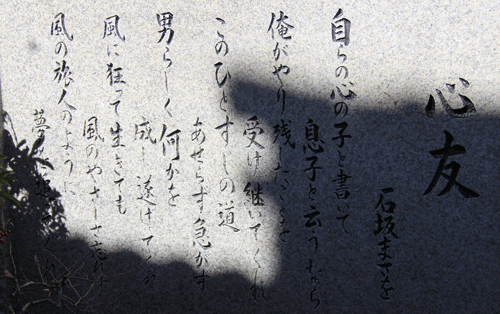 心友
石坂まさを
自らの心の子と書いて
息子と云うなら
俺がやり残したことを
受け継いでくれ
このひとすじの道
あせらず急かず
男らしく何かを
成し遂げてくれ
風に狂って生きても
風のやさしさ忘れず
風の旅人のように
夢を追